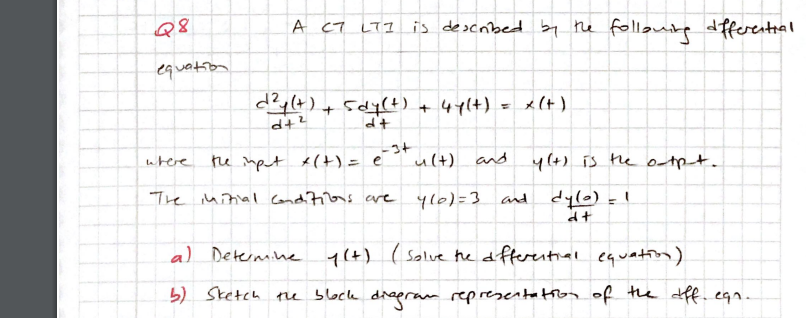 Q8 A CT LTI is described by the following dfferential
equation
d²y(t)/dt² + 5dy(t)/dt + 4y(t) = x(t)
where the input x(t) = e^-3t u(t) and y(t) is the otpt.
The initial conditions are y(0)=3 and dy(0)/dt = 1
a) Determine y(t) (solve the dfferential equation)
b) Sketch the block diagram representation of the dff. eqn.